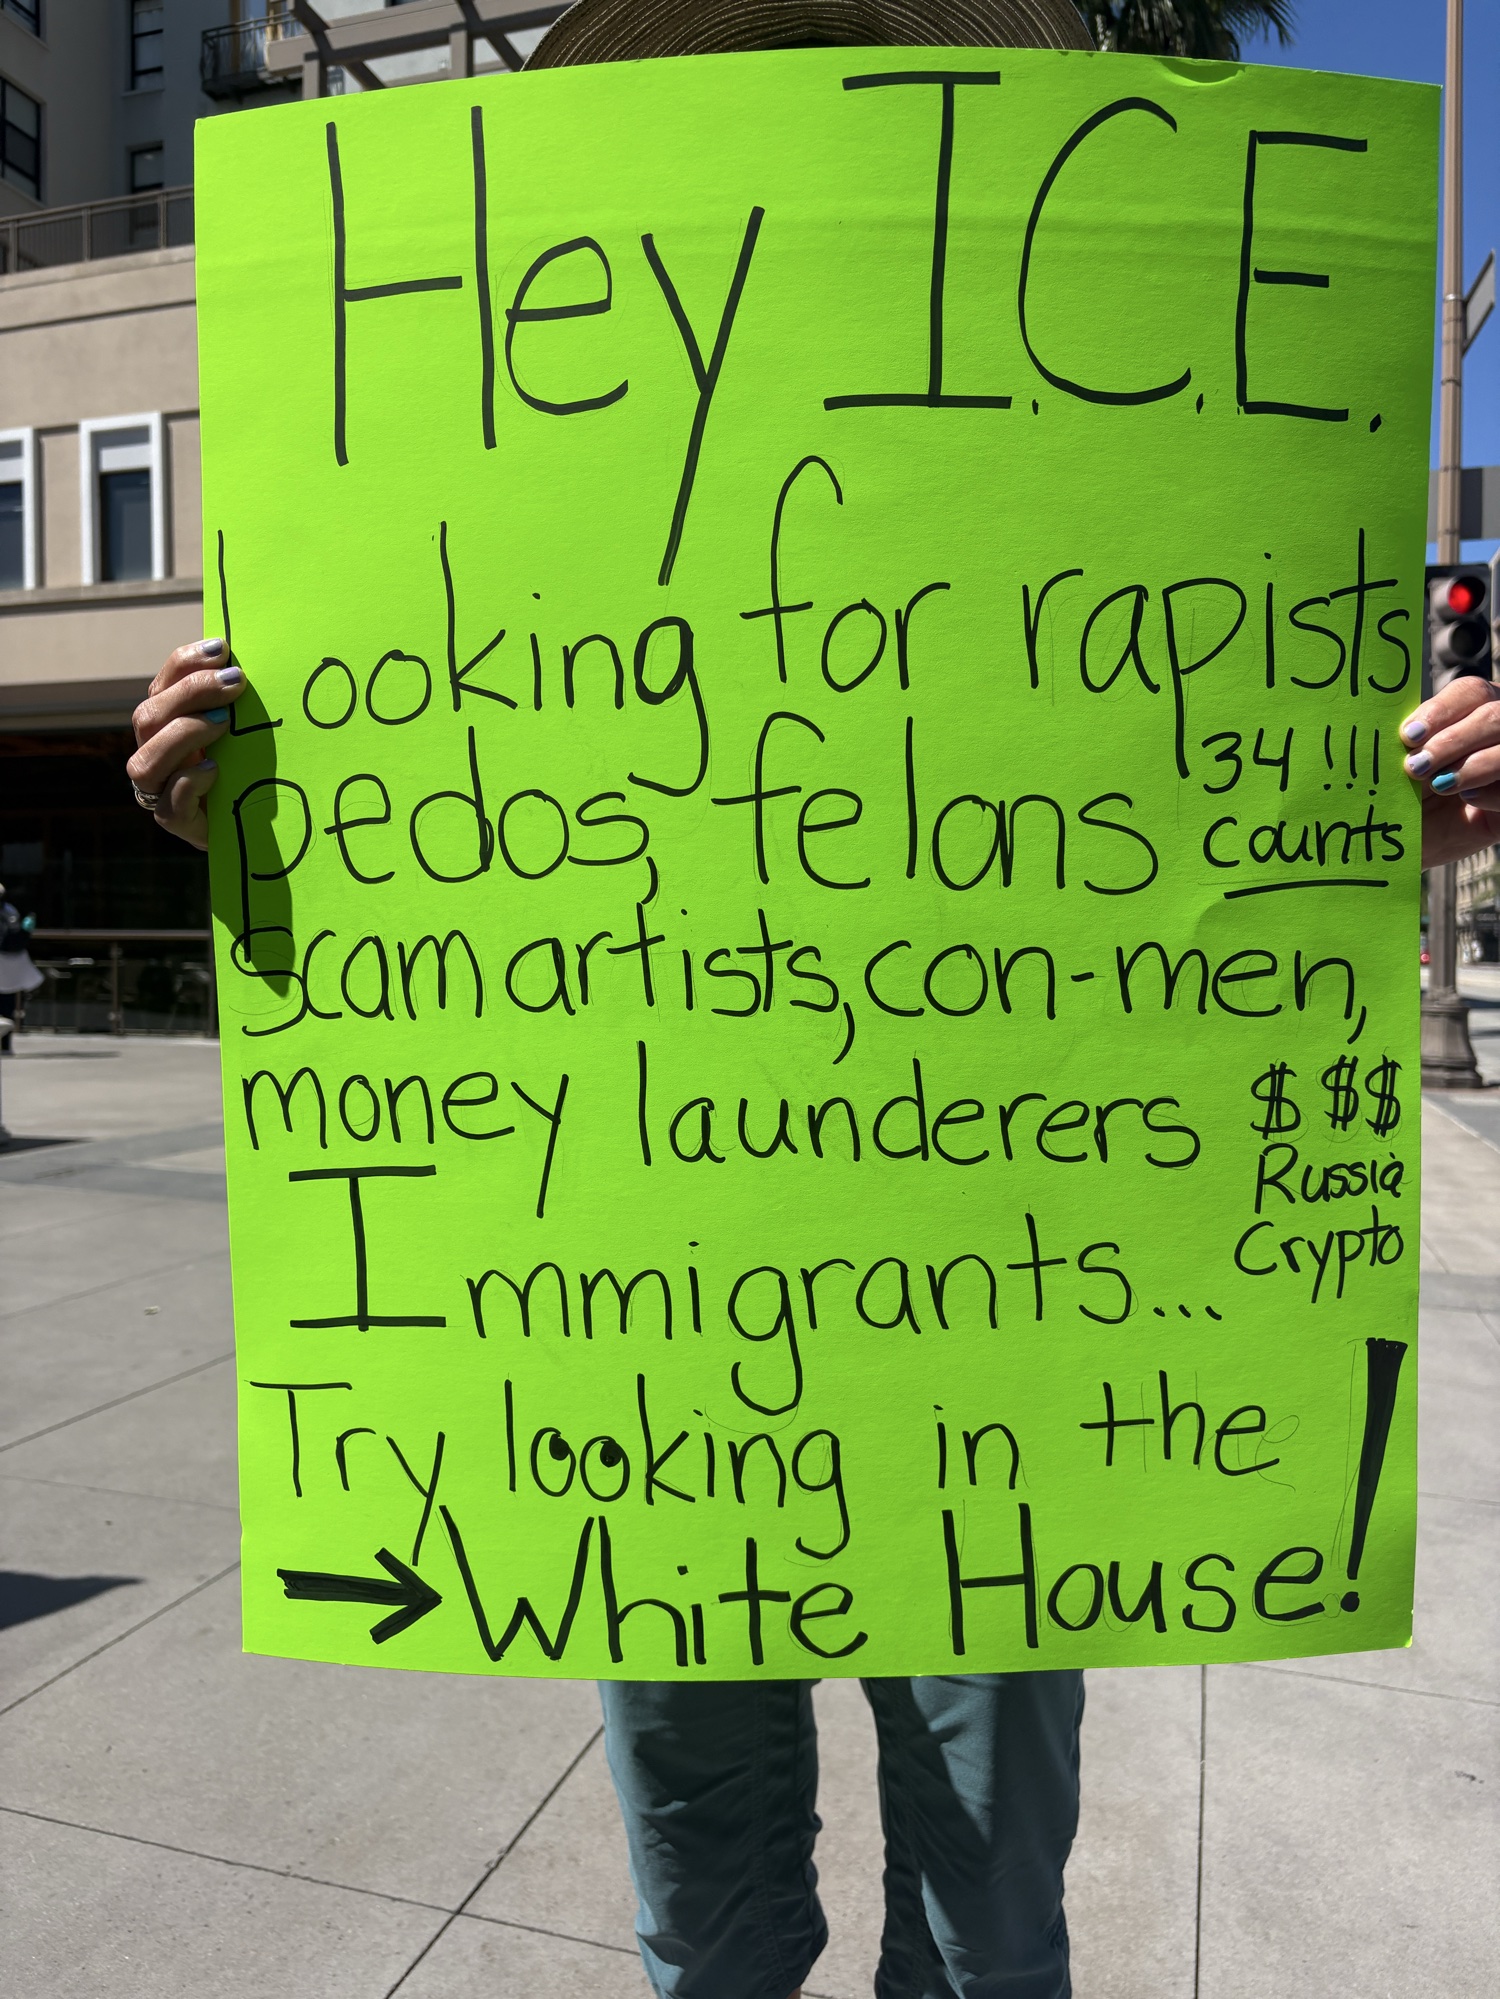 Hey I.C.E.
Looking for rapists
pedos, felons 34!!!
counts
scam artists, con-men,
money launderers $$$
Russia
Crypto
Immigrants...
Try looking in the
→White House!